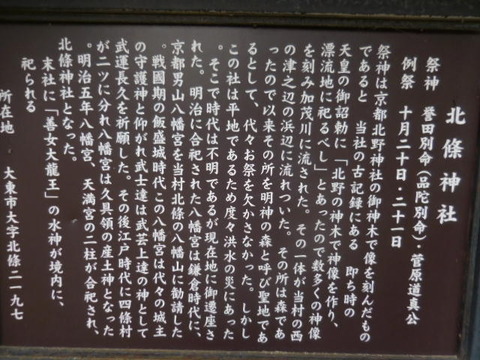 北條神社
祭神　誉田別命(品陀別命)菅原道真公
例祭　十月二十日・二十一日
祭神は京都北野神社の御神木で像を刻んだもの
であると　当社の古記録にある　即ち時の
天皇の御詔勅に「北野の神木で神像を作り、
漂流地に祀るべし」とあったので数多くの神像
を刻み加茂川に流された。その一体が当村の西
の津之辺の浜辺に流れついた。その所は森であ
ったので以来その所を明神の森と呼び聖地であ
るとして、代々お祭を欠かさなかった。しかし
この社は平地であるため度々洪水の災にあった
。そこで時代は不明であるが現在地に御遷座さ
れた。明治に合祀された八幡宮は鎌倉時代に、
京都男山八幡宮を当村北條の八幡山に勧請した
。戦國期の飯盛城時代この八幡宮は代々の城主
の守護神と仰がれ武士達は武芸上達の神として
武運長久を祈願した。その後江戸時代に四條村
が二ツに分れ八幡宮は久具領の産土神となった
。明治五年八幡宮、天満宮の二社が合祀され、
北條神社となった。
末社に「善女大龍王」の水神が境内に、
祀られる
所在地　大東市大字北條二一九七